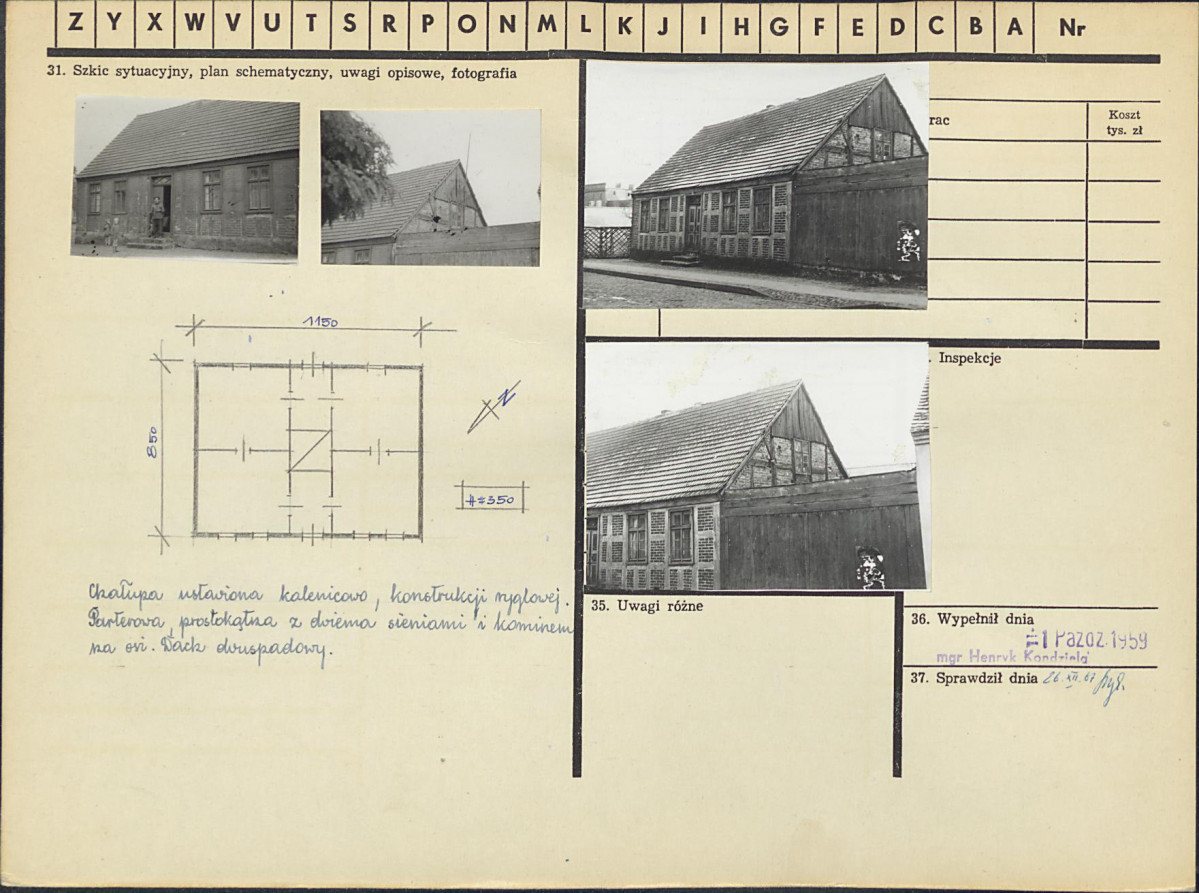 Z Y X W V U T S R P O N M L K J I H G F E D C B A Nr
31. Szkic sytuacyjny, plan schematyczny, uwagi opisowe, fotografia
rac
Koszt
tys. zł
1150
850
N
H=350
Chałupa ustawiona kalenicowo, konstrukcji ryglowej.
Parterowa, prostokątna z dwiema sieniami i kominem
na osi. Dach dwuspadowy.
Inspekcje
35. Uwagi różne
36. Wypełnił dnia
1 PAŹDZ. 1959
mgr Henryk Kondziela
37. Sprawdził dnia 26 XII 67